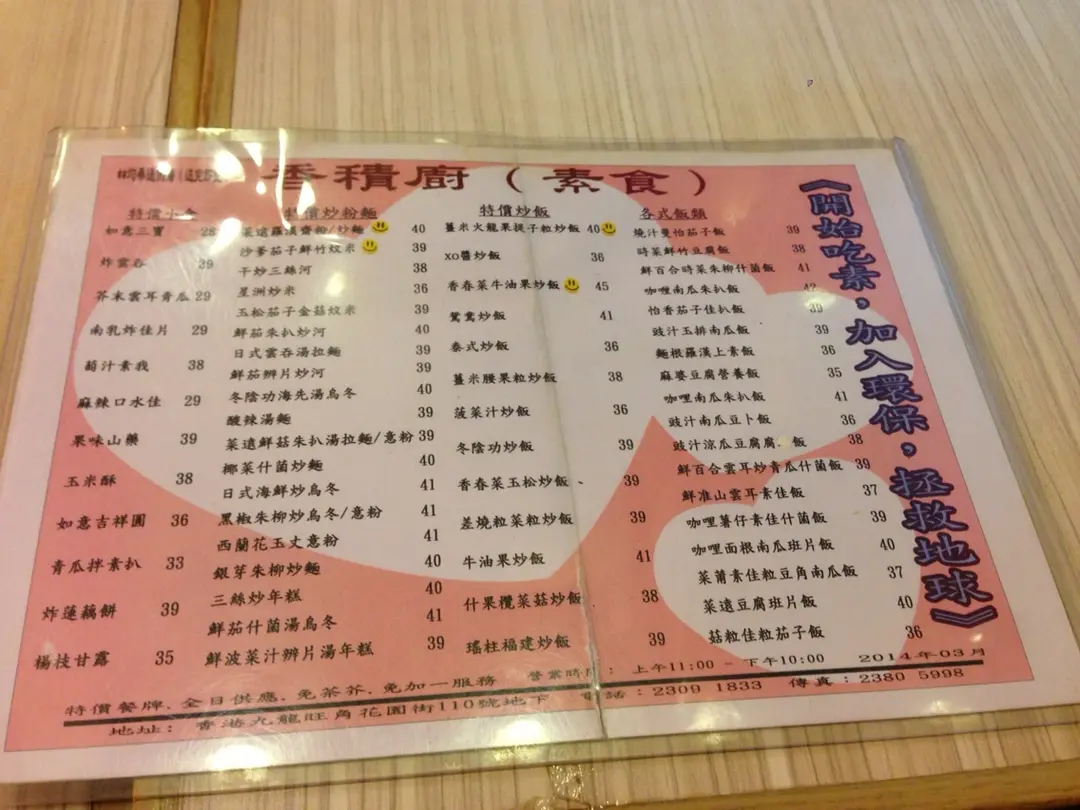 香積廚（素食）
《開始吃素，加入環保，拯救地球》
特價小食
如意三寶 28
炸雲吞 39
芥末雲耳青瓜 29
南乳炸佳片 29
萄汁素我 38
麻辣口水佳 29
果味山藥 39
玉米酥 38
如意吉祥圓 36
青瓜拌素扒 33
炸蓮藕餅 39
楊枝甘露 35
特價炒粉麵
菜遠羅漢齋粉/炒麵 40
沙爹茄子鮮竹炆米 39
干炒三絲河 38
星洲炒米 36
玉松茄子金菇炆米 39
鮮茄朱扒炒河 40
日式雲吞湯拉麵 39
鮮茄辦片炒河 39
冬陰功海先湯烏冬 40
酸辣湯麵 39
菜遠鮮菇朱扒湯拉麵/意粉 39
椰菜什菌炒麵 40
日式海鮮炒烏冬 41
黑椒朱柳炒烏冬/意粉 41
西蘭花玉丈意粉 41
銀芽朱柳炒麵 40
三絲炒年糕 40
鮮茄什菌湯烏冬 41
鮮波菜汁辦片湯年糕 39
特價炒飯
薑米火龍果提子粒炒飯 40
xo醬炒飯 36
香春菜牛油果炒飯 45
鴛鴦炒飯 41
泰式炒飯 36
薑米腰果粒炒飯 38
菠菜汁炒飯 36
冬陰功炒飯 39
香春菜玉松炒飯 39
差燒粒菜粒炒飯 39
牛油果炒飯 41
什果欖菜菇炒飯 38
瑤柱福建炒飯 39
各式飯類
燒汁雙怡茄子飯 39
時菜鮮竹豆腐飯 38
鮮百合時菜朱柳什菌飯 41
咖哩南瓜朱扒飯 42
怡香茄子佳扒飯 39
豉汁玉排南瓜飯 39
麵根羅漢上素飯 36
麻婆豆腐營養飯 35
咖哩南瓜朱扒飯 41
豉汁南瓜豆卜飯 36
豉汁涼瓜豆腐腐 飯 38
鮮百合雲耳炒青瓜什菌飯 39
鮮准山雲耳素佳飯 37
咖哩薯仔素佳什菌飯 39
咖哩面根南瓜班片飯 40
菜莆素佳粒豆角南瓜飯 37
菜遠豆腐班片飯 40
菇粒佳粒茄子飯 36
特價餐牌.全日供應.免茶芥.免加一服務 營業時間：上午11:00 - 下午10:00 2014年03月
地址：香港九龍旺角花園街110號地下 電話：2309 1833 傳真：2380 5998